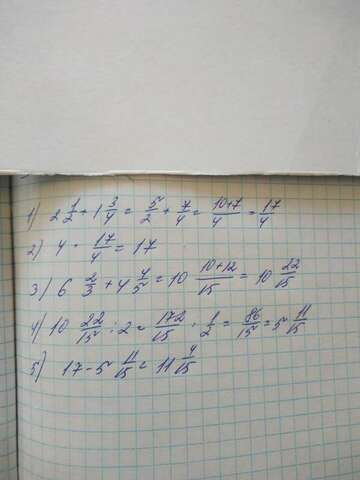 1) 2 1/2 + 1 3/4 = 5/2 + 7/4 = (10+7)/4 = 17/4
2) 4 · 17/4 = 17
3) 6 2/3 + 4 4/5 = 10 (10+12)/15 = 10 22/15
4) 10 22/15 : 2 = 172/15 · 1/2 = 86/15 = 5 11/15
5) 17 - 5 11/15 = 11 4/15